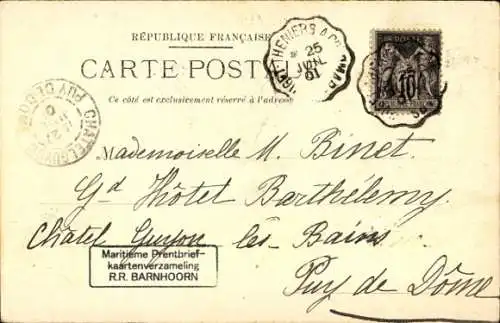 RÉPUBLIQUE FRANÇAISE
CARTE POSTALE
Ce côté est exclusivement réservé à l'adresse
25
JUIN
01
10
CHATELGUYON
PUY DE DOME
Mademoiselle M. Binet
Gd Hôtel Barthélemy
Châtel Guyon les Bains
Puy de Dôme
Maritieme Prentbrief-
kaartenverzameling
R.R. BARNHOORN